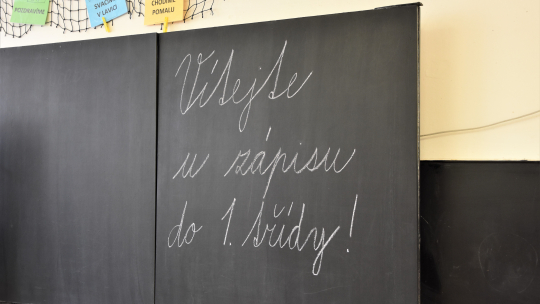 POZDRAVÍME
SVAČÍME
V LAVICI
CHODÍME
POMALU
Vítejte
u zápisu
do 1. třídy!